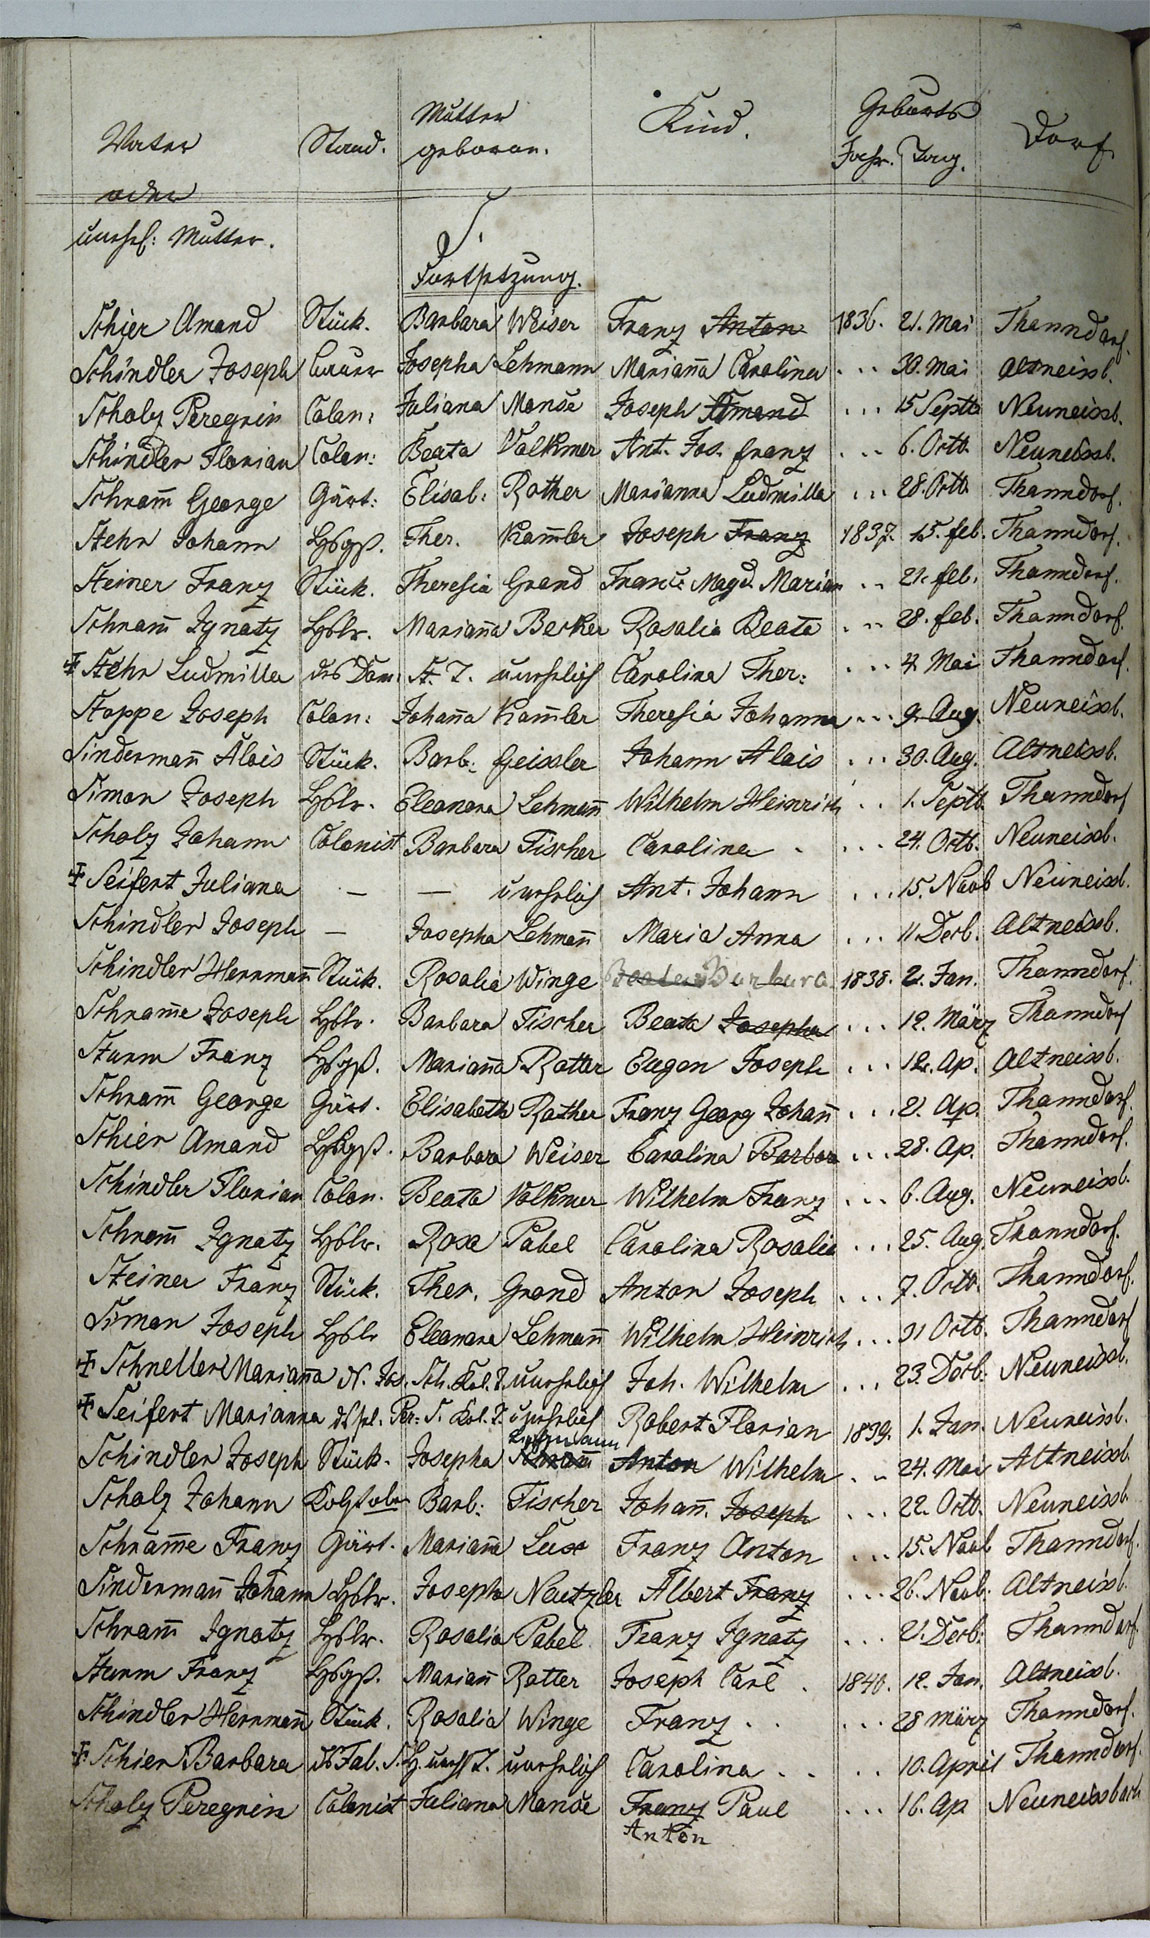 Vater Stand. Mutter Kind. Geburts Dorf
oder geboren. Jahr. Tag.
unehel: Mutter.
S.
Fortsetzung.
Schier Amand Stück. Barbara Weiser Franz Anton 1836. 21. Mai Thanndorf.
Schindler Joseph Bauer Josepha Lehmann Marianna Carolina ... 30. Mai Altneissb.
Scholz Peregrin Colon: Juliana Monse Joseph Amand ... 15 Septb Neuneissb.
Schindler Florian Colon: Beata Volkmer Ant. Jos. Franz ... 6. Octb. Neuneissb.
Schram̄ George Gärt: Elisab: Rother Marianna Ludmilla ... 28. Octb. Thanndorf.
Stehr Johann Hsbgß. Ther. Kam̄ler Joseph Franz 1837. 15. feb. Thanndorf.
Steiner Franz Stück. Theresia Grand Franc: Magd. Marian .. 21. feb. Thanndorf.
Schram̄ Ignatz Hslr. Marian̄a Becker Rosalia Beata ... 28. feb. Thanndorf.
Stehr Ludmilla des Dom. St. T. unehelich Carolina Ther: ... 4. Mai Thanndorf.
Stoppe Joseph Colon: Johan̄a Kam̄ler Theresia Johanna ... 9. Aug. Neuneissb.
Sinderman̄ Alois Stück. Barb: Geissler Johann Alois ... 30. Aug. Altneissb.
Simon Joseph Hslr. Eleonora Lehman̄ Wilhelm Heinrich ... 1. Septb. Thanndorf
Scholz Johann Colonist Barbara Fischer Carolina . ... 24. Octb. Neuneissb.
Seifert Juliana — — unehelich Ant. Johann ... 15. Novb Neuneissb.
Schindler Joseph — Josepha Lehman̄ Maria Anna ... 11 Decb. Altneissb.
Schindler Herrman̄ Stück. Rosalia Winge Barbara 1838. 2. Jan. Thanndorf.
Schram̄e Joseph Hslr. Barbara Fischer Beata Josepha ... 12. März Thanndorf
Sturm Franz Hsbgß. Marian̄a Rotter Eugen Joseph ... 12. Ap. Altneissb.
Schram̄ George Gärt. Elisabeth Rother Franz Georg Johan̄ ... 21. Ap. Thanndorf.
Schier Amand Hsbgß. Barbara Weiser Carolina Barbara ... 28. Ap. Thanndorf.
Schindler Florian Colon. Beata Volkmer Wilhelm Franz ... 6. Aug. Neuneissb.
Schram̄ Ignatz Hslr. Rosa Pabel Carolina Rosalia ... 25. Aug. Thanndorf.
Steiner Franz Stück. Ther. Grand Anton Joseph ... 7. Octb. Thanndorf.
Simon Joseph Hslr Eleonora Lehman̄ Wilhelm Heinrich ... 31 Octb. Thanndorf
Schneller Marian̄a d. Jos. Sch. Kol. T. unehelich Joh. Wilhelm ... 23. Decb. Neuneissb.
Seifert Marianna Per: S. Kol. T. unehelich Robert Florian 1839. 1. Jan. Neuneissb.
Lehmann
Schindler Joseph Stück. Josepha Schram̄ Anton Wilhelm .. 24. Mai Altneissb
Scholz Johann Barb: Fischer Johan̄. Joseph ... 22. Octb. Neuneissb.
Schram̄e Franz Gärt. Marian̄a Luse Franz Anton ... 15. Novb Thanndorf.
Sinderman̄ Johann Hslr. Josepha Neutzler Albert Franz ... 26. Novb. Altneissb.
Schram̄ Ignatz Hslr. Rosalia Pabel Franz Ignatz ... 2. Decb. Thanndorf.
Sturm Franz Hsbgß. Marian̄ Rotter Joseph Carl . 1840. 12. Jan. Altneissb.
Schindler Herrman̄ Stück. Rosalia Winge Franz . . ... 28 März Thanndorf.
Schier Barbara unehelich Carolina . . . . 10. April Thanndorf.
Scholz Peregrin Colonist Juliana Monse Franz Paul ... 16. Ap Neuneissbach
Anton